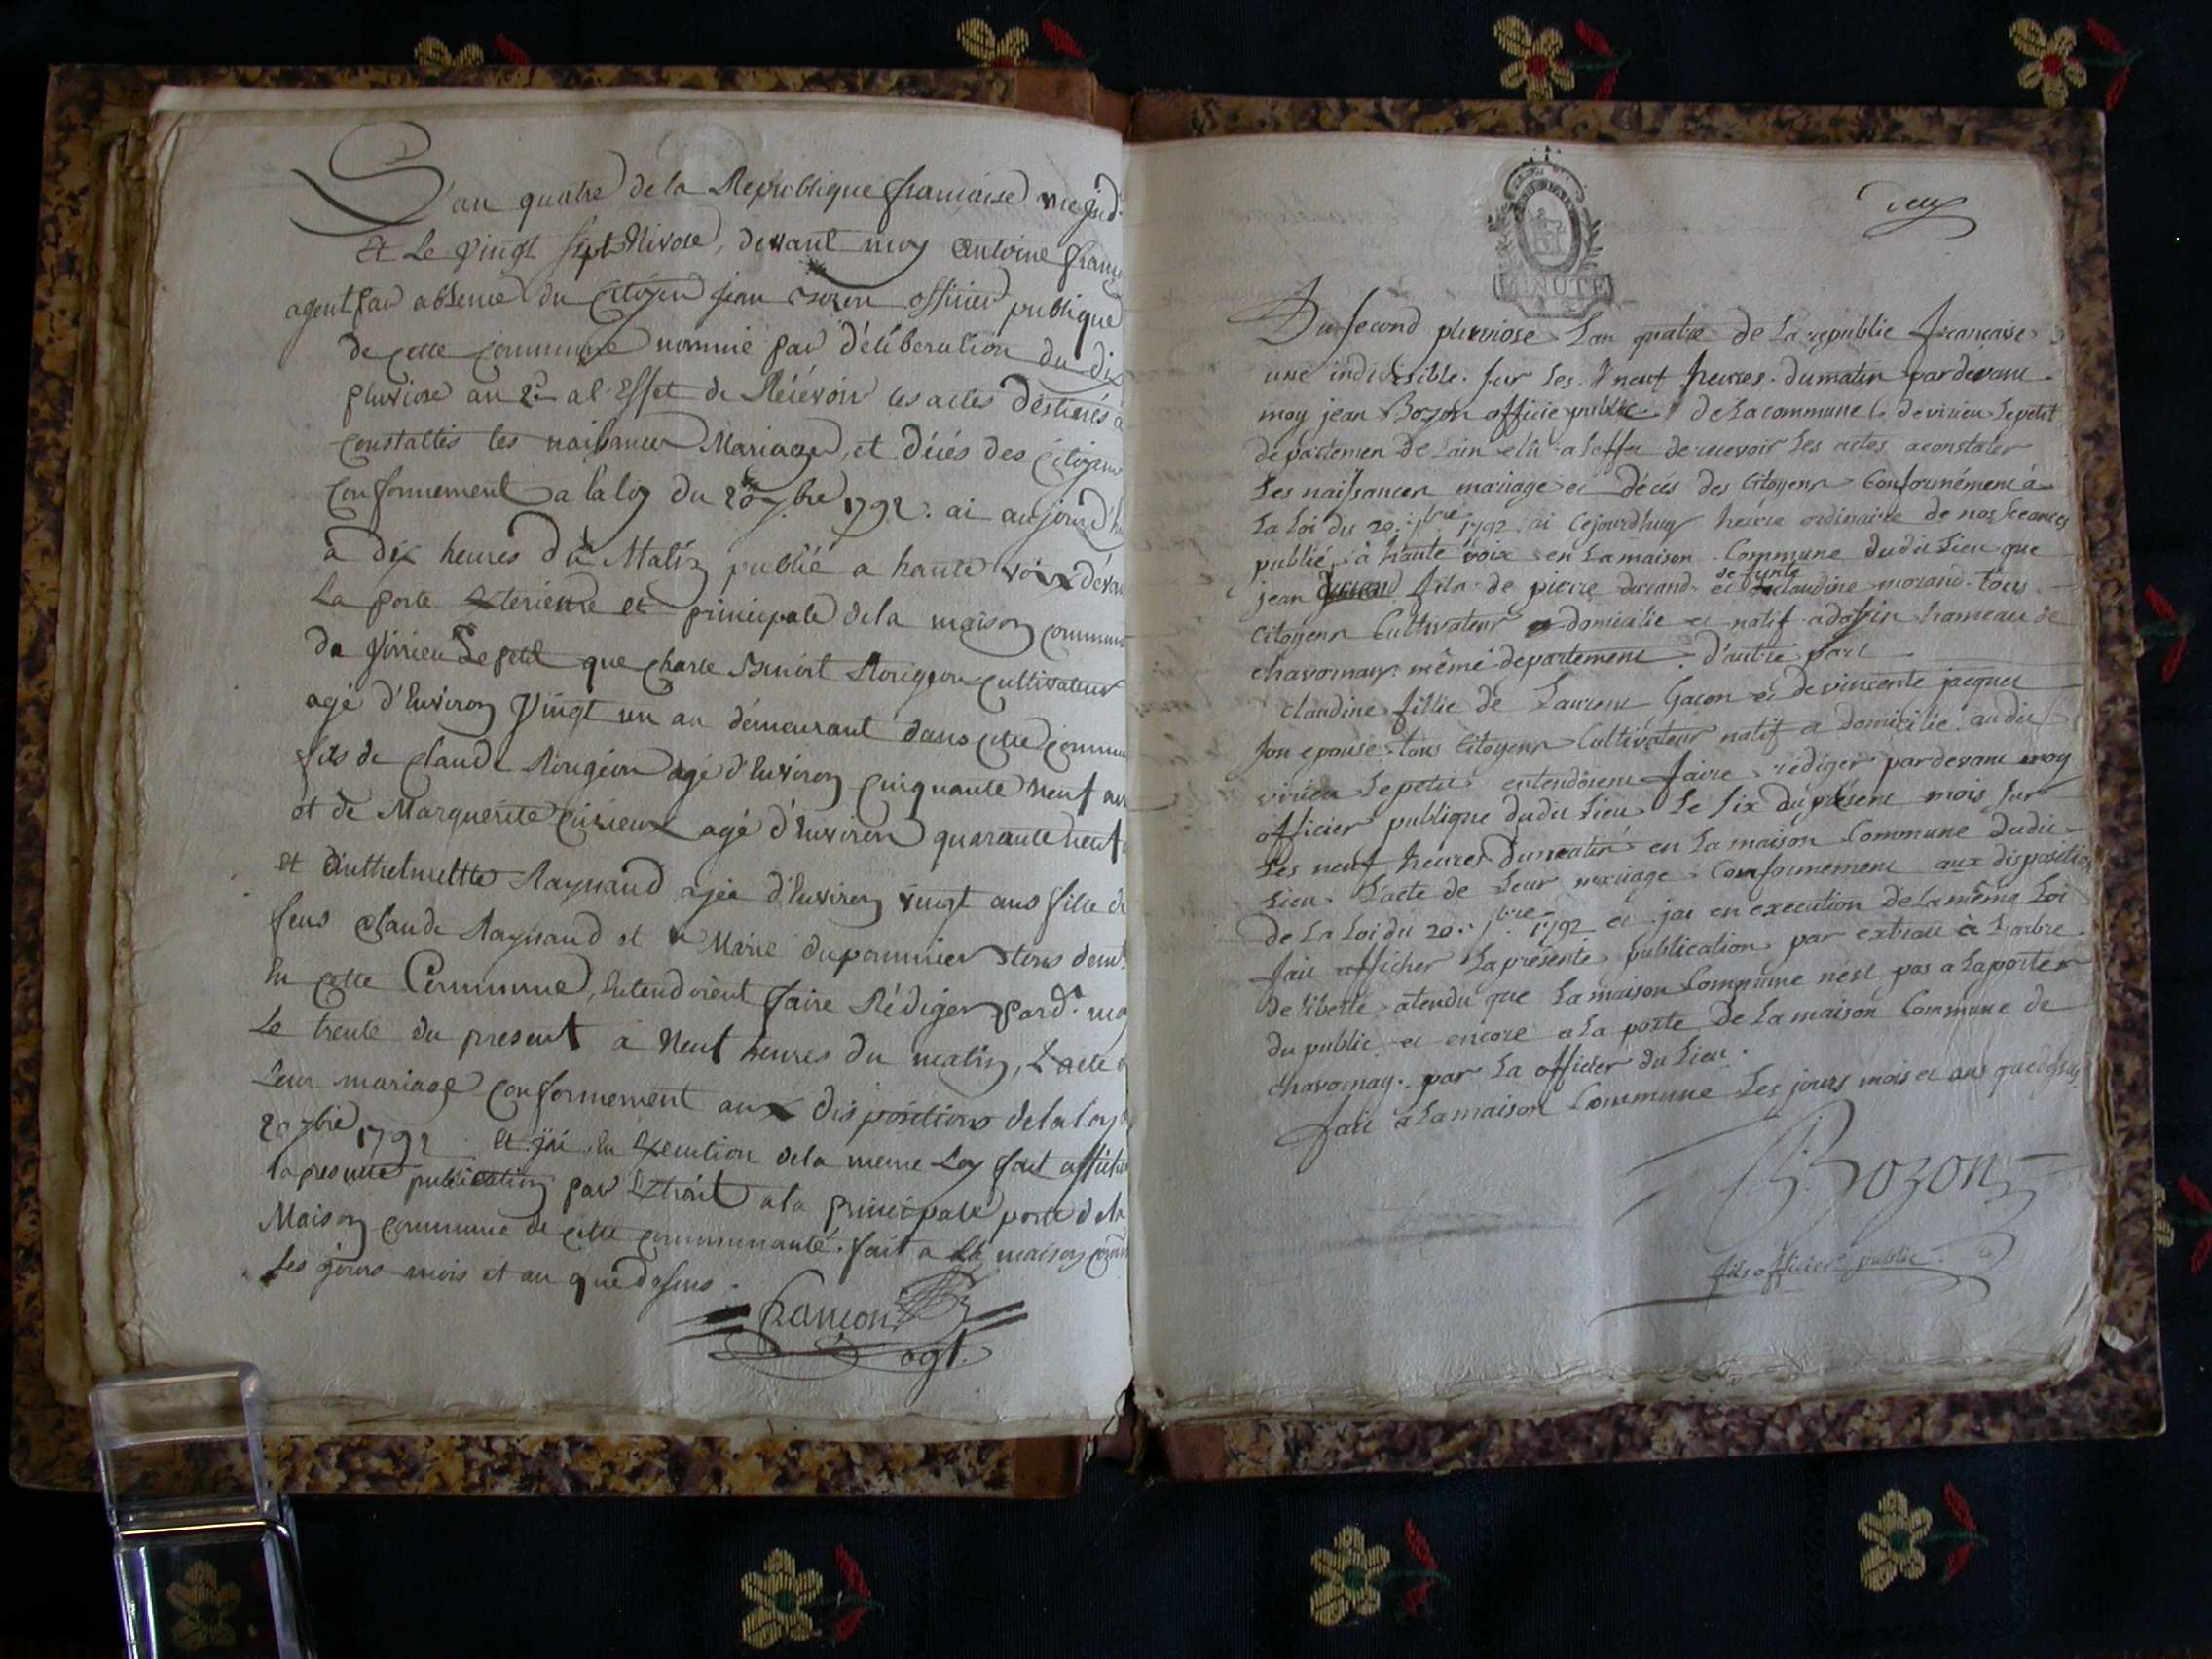 L'an quatre de la Republique francaise une jnd.
Et Le vingt sept Nivose, devant moy Antoine franç
agent par absence du Citoyen jean Bozon officier publique
de cette commune nommé par déliberation du dix
pluviose an 2.e a l'Effet de Récévoir les actes déstinés a
constattés les naissances Mariage, et décés des Citoyens
conformement a la loy du 20 7.bre 1792. ai aujourd'hu
a dix heures du Matin publié a haute voix dévan
La porte Exterieure et principale dela maison commune
de Virrieu Le petit que charle Benoit Rougeon cultivateur
agé d'Environ Vingt un an démeurant dans cette commu
fils de claude Rougeon agé d'Environ cinquante neuf an
et de Marguerite agé d'Environ quarante neuf
et Anthelmette Raynaud agée d'Environ vingt ans fille de
feus Claude Raynaud et Marie dupommier tous dem.t
En cette Commune, Entendoient faire Rédiger pard.t mo
Le trente du present a Neuf heures du matin, L'acte d
Leur mariage conformement aux dispositions dela loy
20 7bre 1792. et j'ai En Execution dela meme Loy fait affiche
la presente publication par Extrait ala principale porte dela
Maison commune de cette communauté. fait a la maison com
Les jours mois et an que dessus.
françon
agt.
MINUTE
Du second pluviose Lan quatre de La republic francaise
une indivisible. sur Les neuf heures dumatin pardevant
moy jean Bozon officie public de La commune de virieu Lepetit
departemen De Lain elu a Leffet derecevoir Les actes aconstater
Les naissances mariage et décés des Citoyens Conformément à
La Loi du 20. 7bre 1792. ai Cejourdhuy heure ordinaire de nos seances
publié à haute voix en La maison Commune dudit Lieu que
jean durand fils de pierre durand et de defunte claudine morand tous
Citoyens Cultivateur domicilie et natif hameau de
chavornay même departement d'autre part
claudine fillie de Laurent Gacon et de vincente jacquet
son epouse tous Citoyens Cultivateur natif a domicilié audit
virieu Lepetit entendoient faire rédiger pardevant moy
officier publique dudit Lieu Le six du présent mois sur
Les neuf heures dumatin en La maison Commune dudit
Lieu Lacte de Leur mariage Conformement aux disposition
De La Loi du 20. 7.bre 1792 et jai en execution de La même Loi
fait afficher La présente publication par extrait à Larbre
De liberté atendu que La maison Commune nest pas a Laporter
du public et encore a La porte De La maison Commune de
chavornay. par La officier du Lieu.
fait a La maison Commune Les jours mois et ans que dessus
Bozon
fils officier public